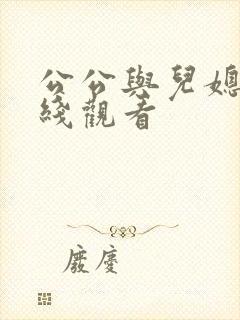 公公與兒媳
綫觀看
廢慶